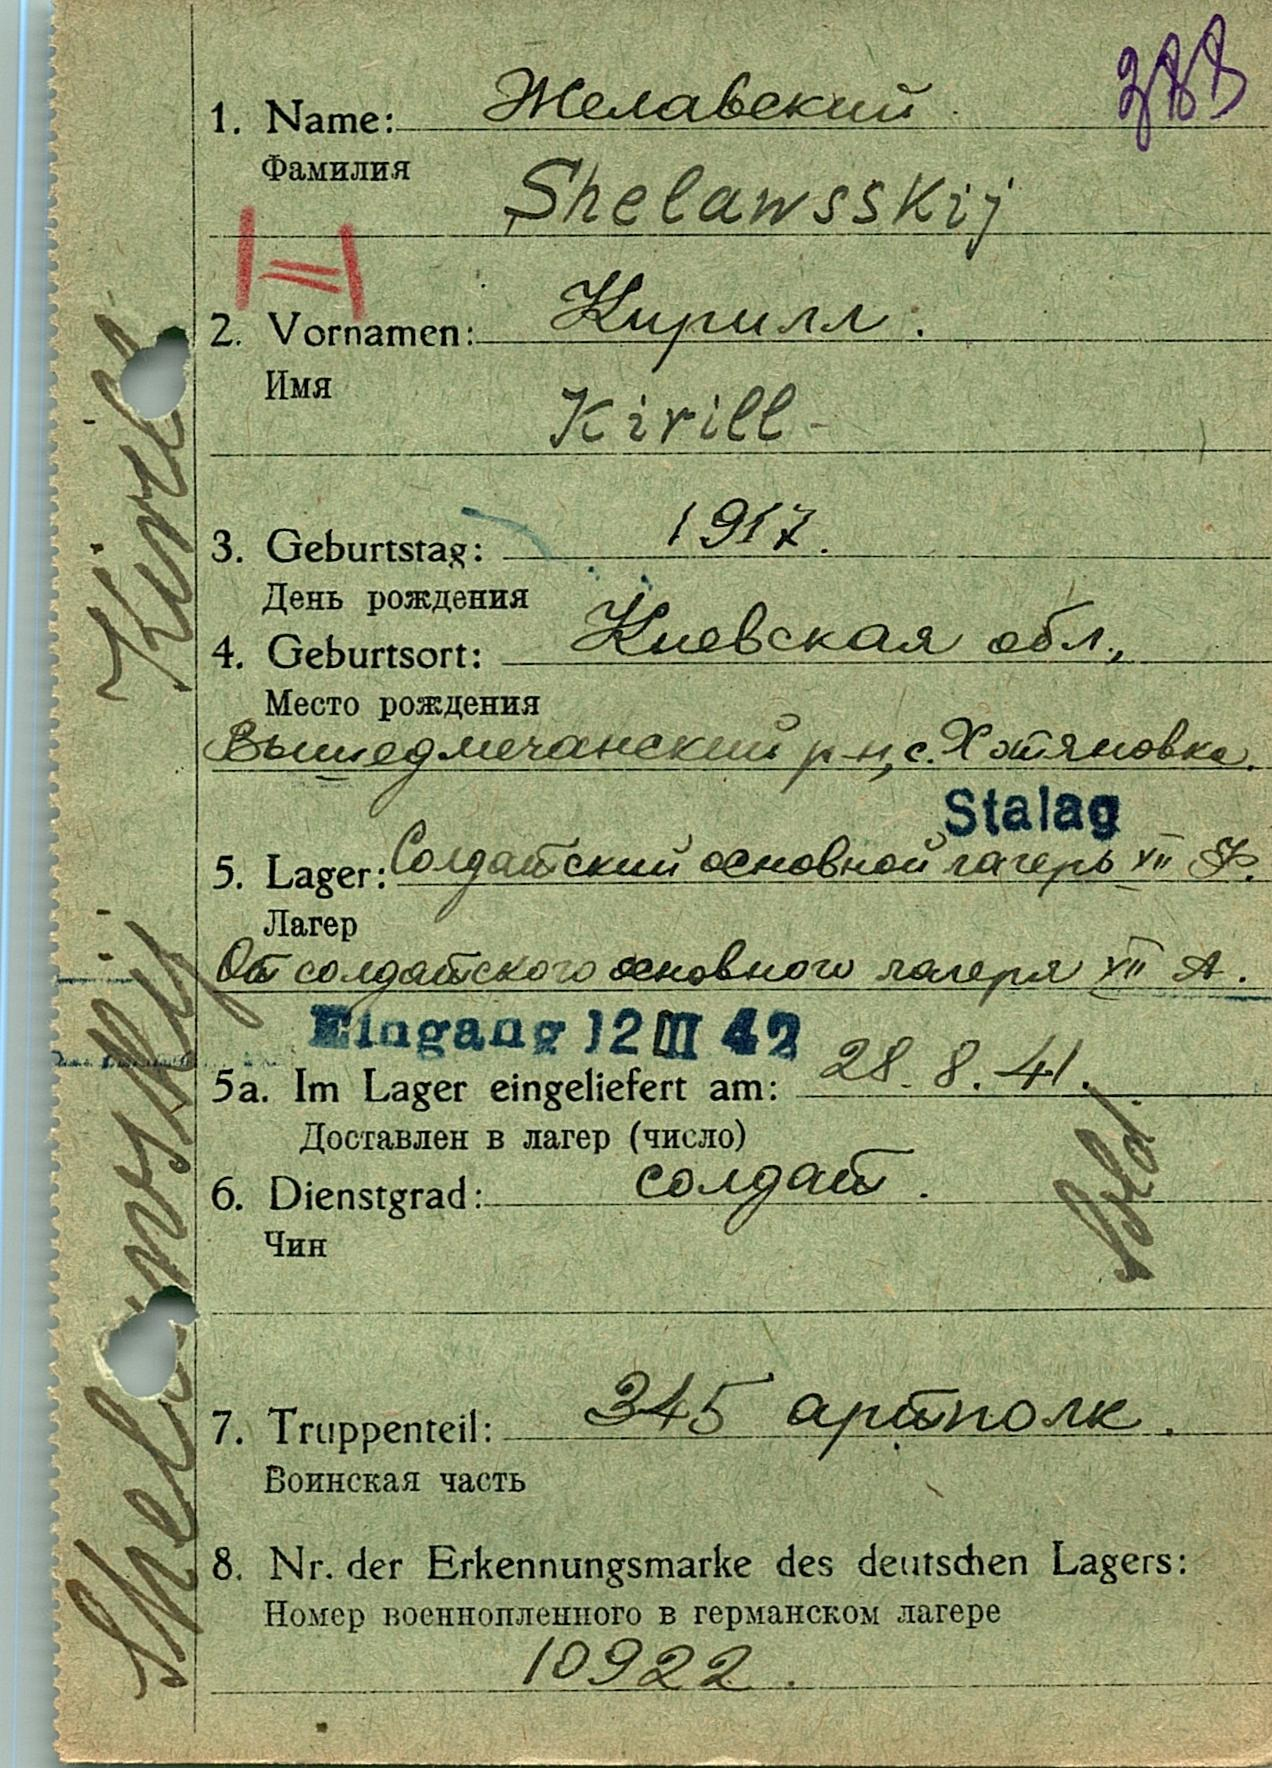 388
1. Name: Желавский
Фамилия
Shelawsskij
2. Vornamen: Кирилл.
Имя
Kirill
3. Geburtstag: 1917.
День рождения
4. Geburtsort: Киевская обл.,
Место рождения
Вышедмечанский р-н, с. Хатяновка.
Stalag
5. Lager: Солдатский основной лагерь XII F.
Лагер
От солдатского основного лагеря XII A.
Eingang 12 III 42
5a. Im Lager eingeliefert am: 28. 8. 41.
Доставлен в лагер (число)
6. Dienstgrad: солдат.
Чин
Sold.
7. Truppenteil: 345 артполк.
Воинская часть
8. Nr. der Erkennungsmarke des deutschen Lagers:
Номер военнопленного в германском лагере
10922.
Shelawsskij Kirill